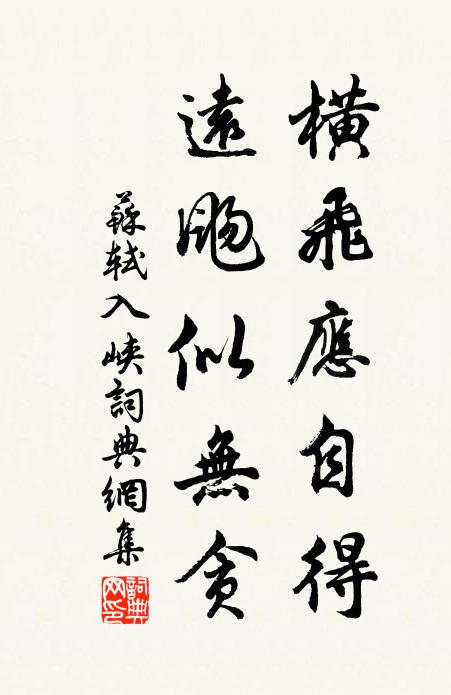 橫飛應自得
遠颺似無貪
蘇軾入峽詞典網集
詞典网印